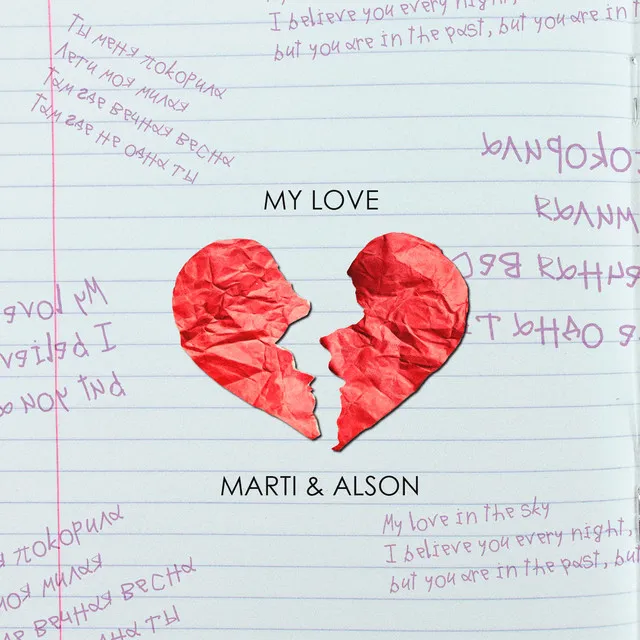 I believe you every night,
but you are in the past, but you are in
Ты меня покорила
Лети моя милая
Там где вечная весна
Там где не одна ты
покорила
милая
вечная вес
одна т
MY LOVE
My love
I believ
but you a
MARTI & ALSON
покорила
моя милая
е вечная весна
на ты
My love in the sky
I believe you every night,
but you are in the past, but